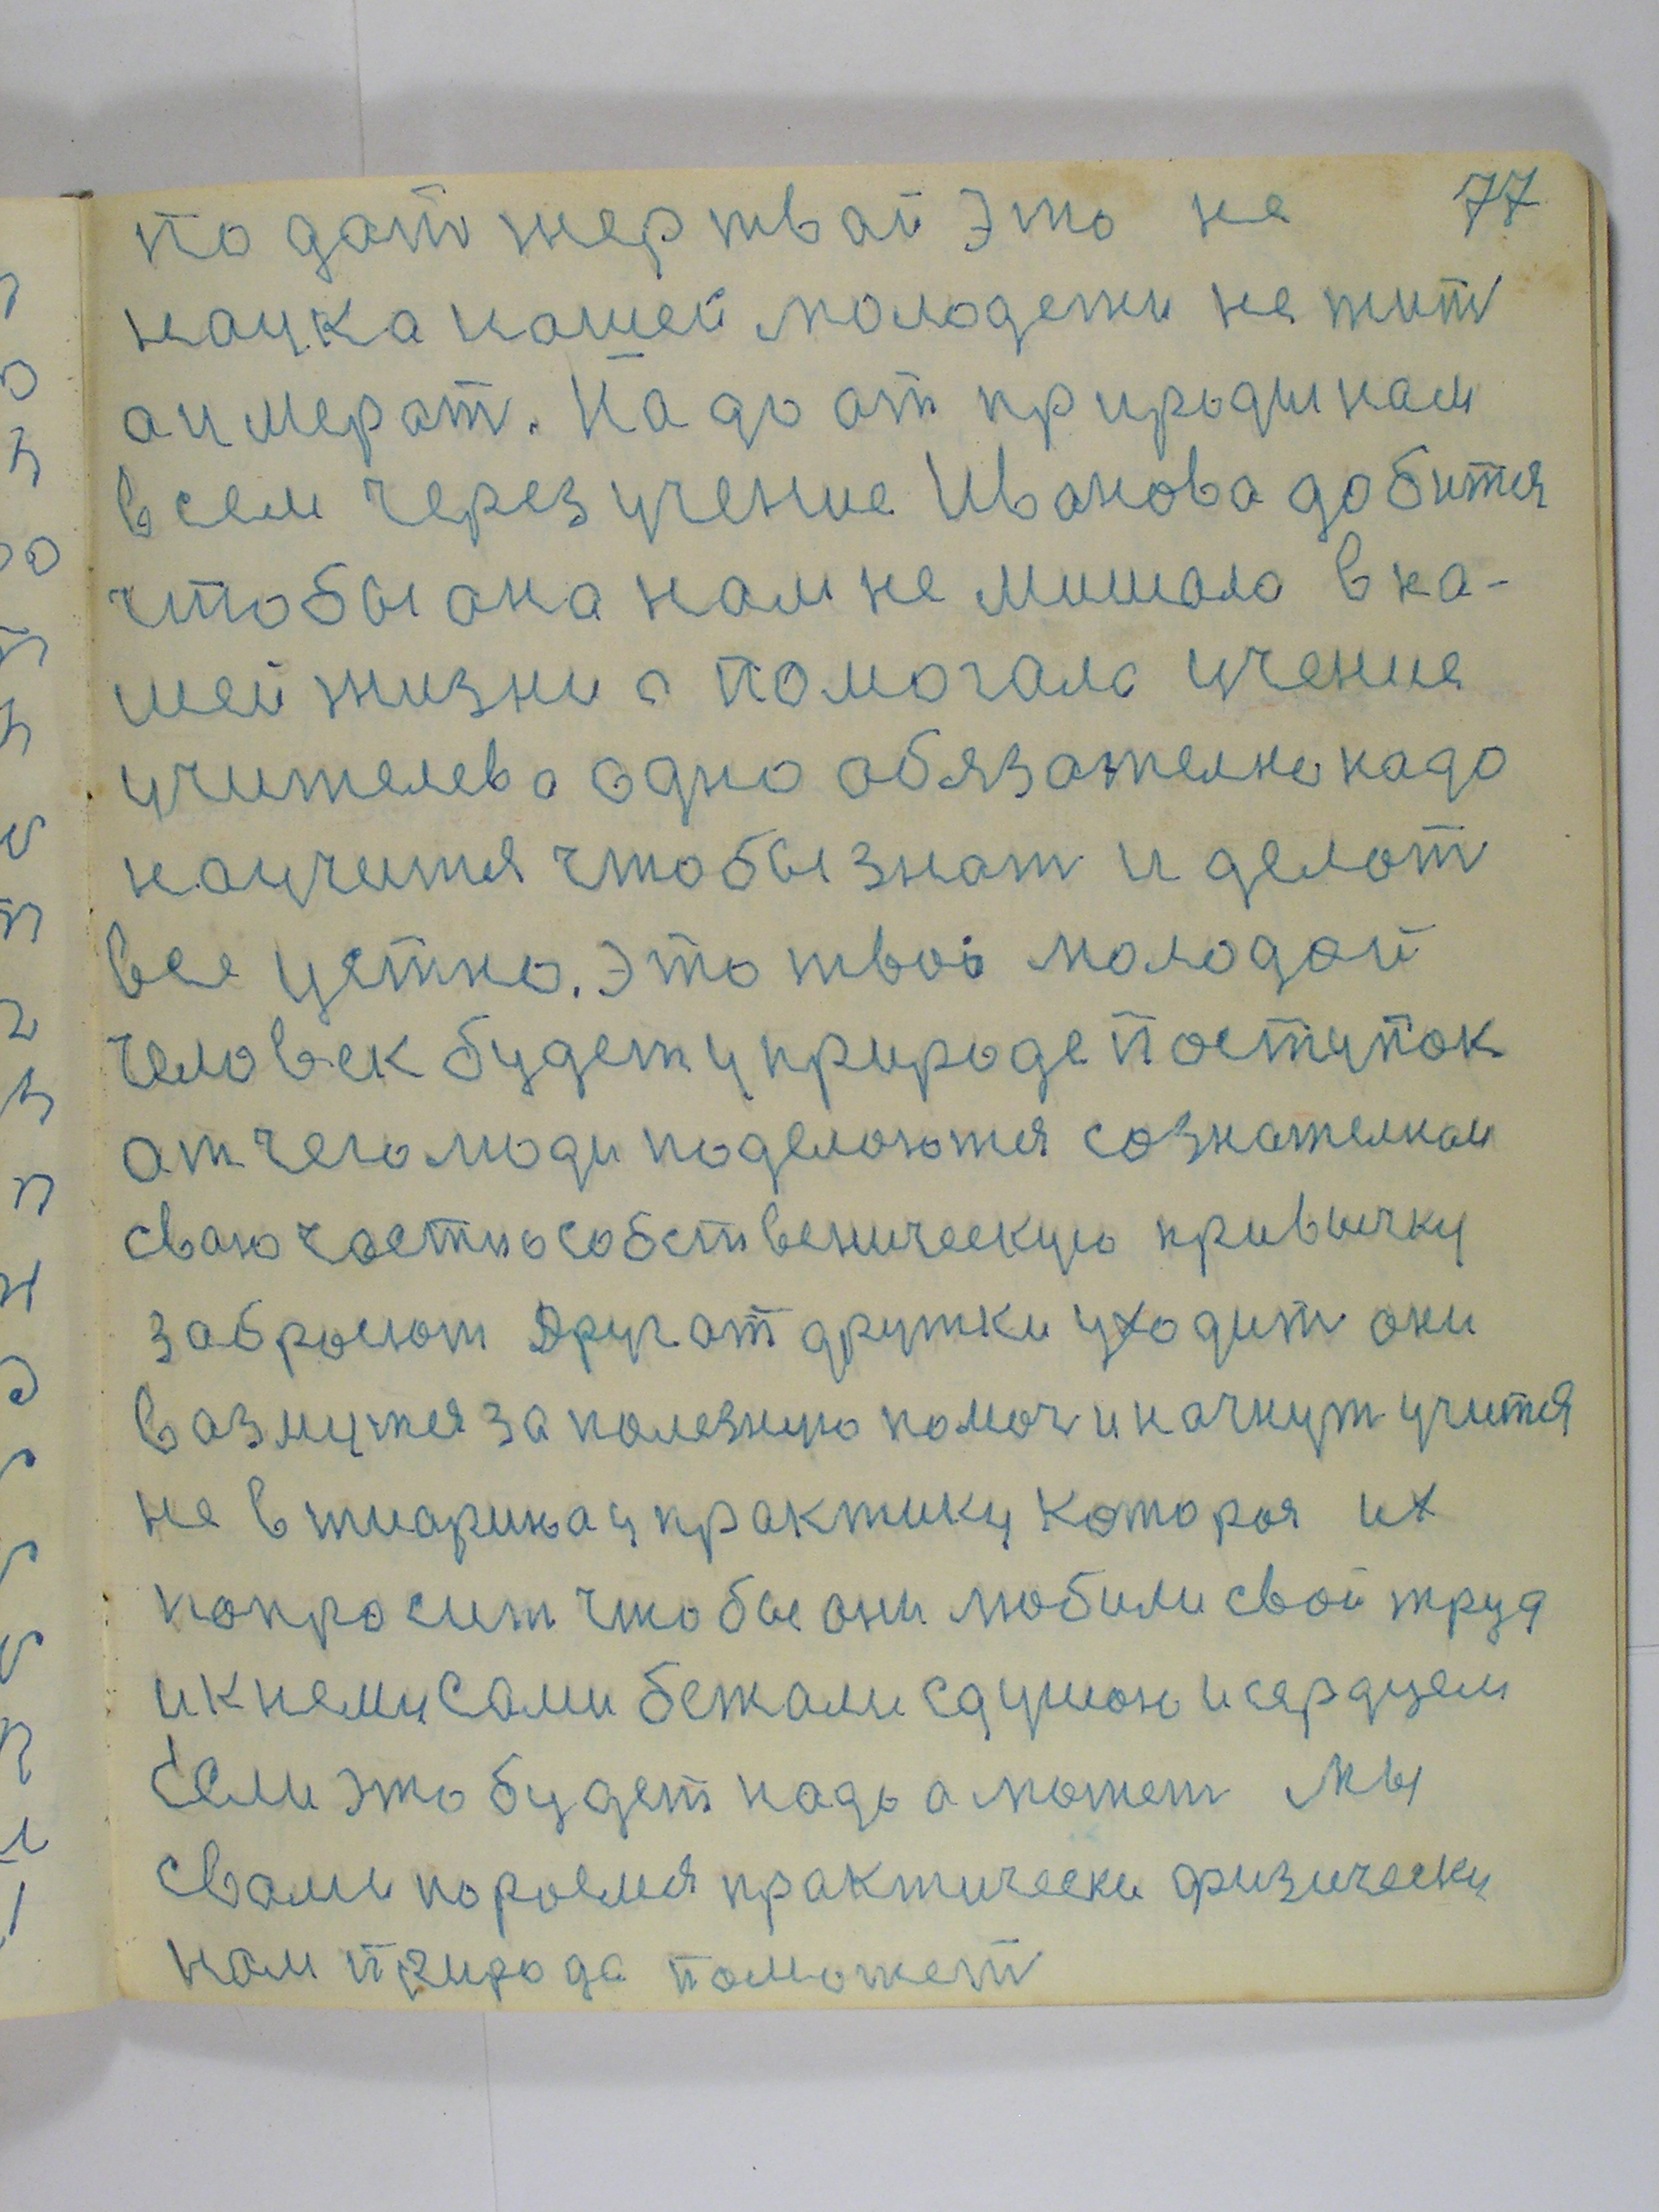 подат жертвай Это не 77
наука нашей молодежи не жит
а имерат. Надо от природы нам
всем через учение Иванова добится
чтобы она нам не мишала в на-
шей жизни а помогала учение
учителева одно обязателно надо
научится чтобы знат и делат
все устно. Это твой молодой
человек будет у природе поступок
от чего люди поделаются сознателнаи
сваю частнособственическую привычку
забросют Друг от дружки уходит они
вазмутся за полезную помоч и начнут учится
не в тиарию а у практику которая их
попросит чтобы они любили свой труд
и к нему сами бежали с душою и сердцем
Если это будет надо а может мы
свами пороемся практически физически
нам природа поможет